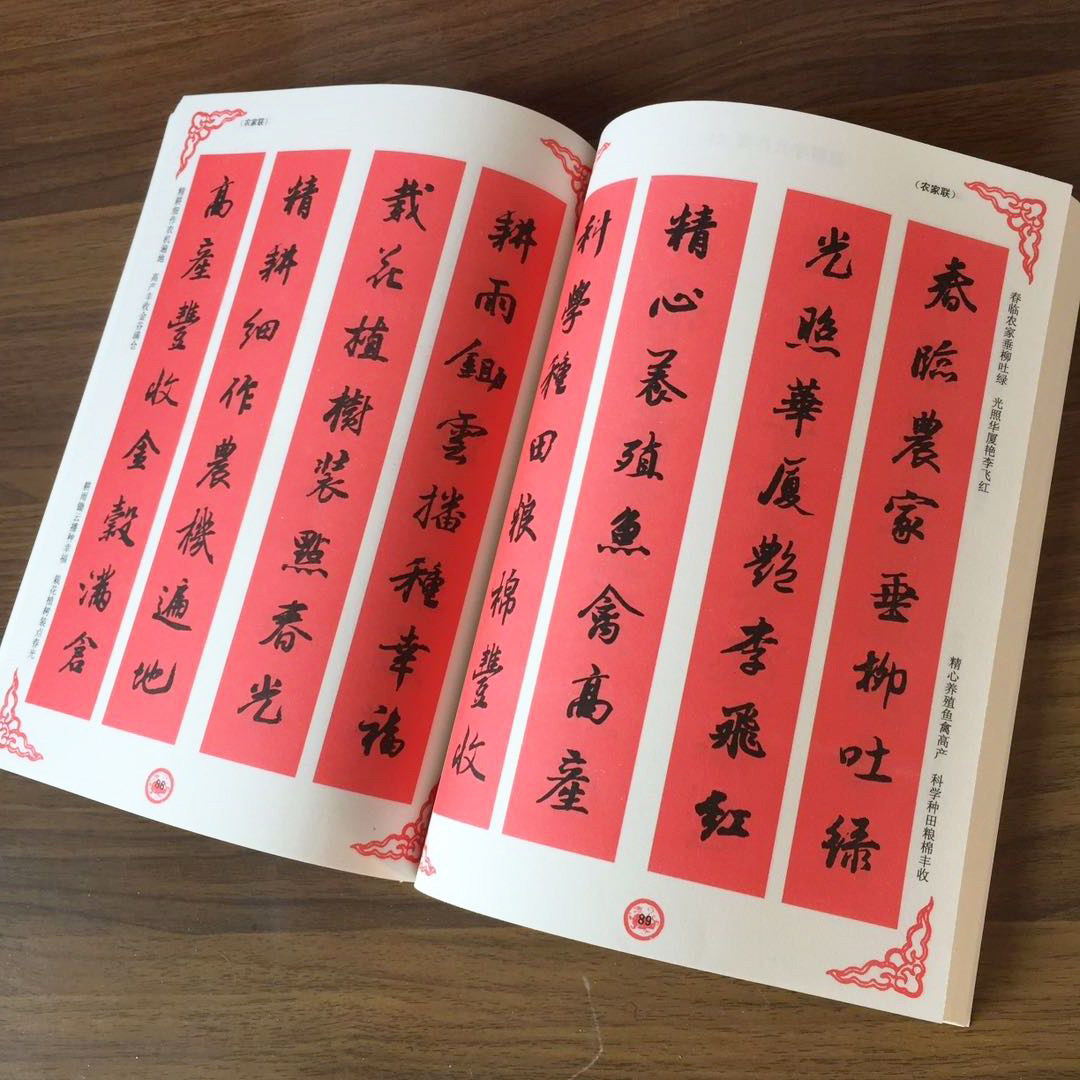 （农家联）
耕雨鋤雲播種幸福
栽花植樹装點春光
精耕細作農機遍地
高產豐收金穀滿倉
精耕细作农机遍地　高产丰收金谷满仓
耕雨锄云播种幸福　栽花植树装点春光
（农家联）
春临农家垂柳吐绿　光照华厦艳李飞红
精心养殖鱼禽高产　科学种田粮棉丰收
春臨農家垂柳吐緑
光照華廈艷李飛紅
精心养殖魚禽高產
科學種田粮棉豐收
89